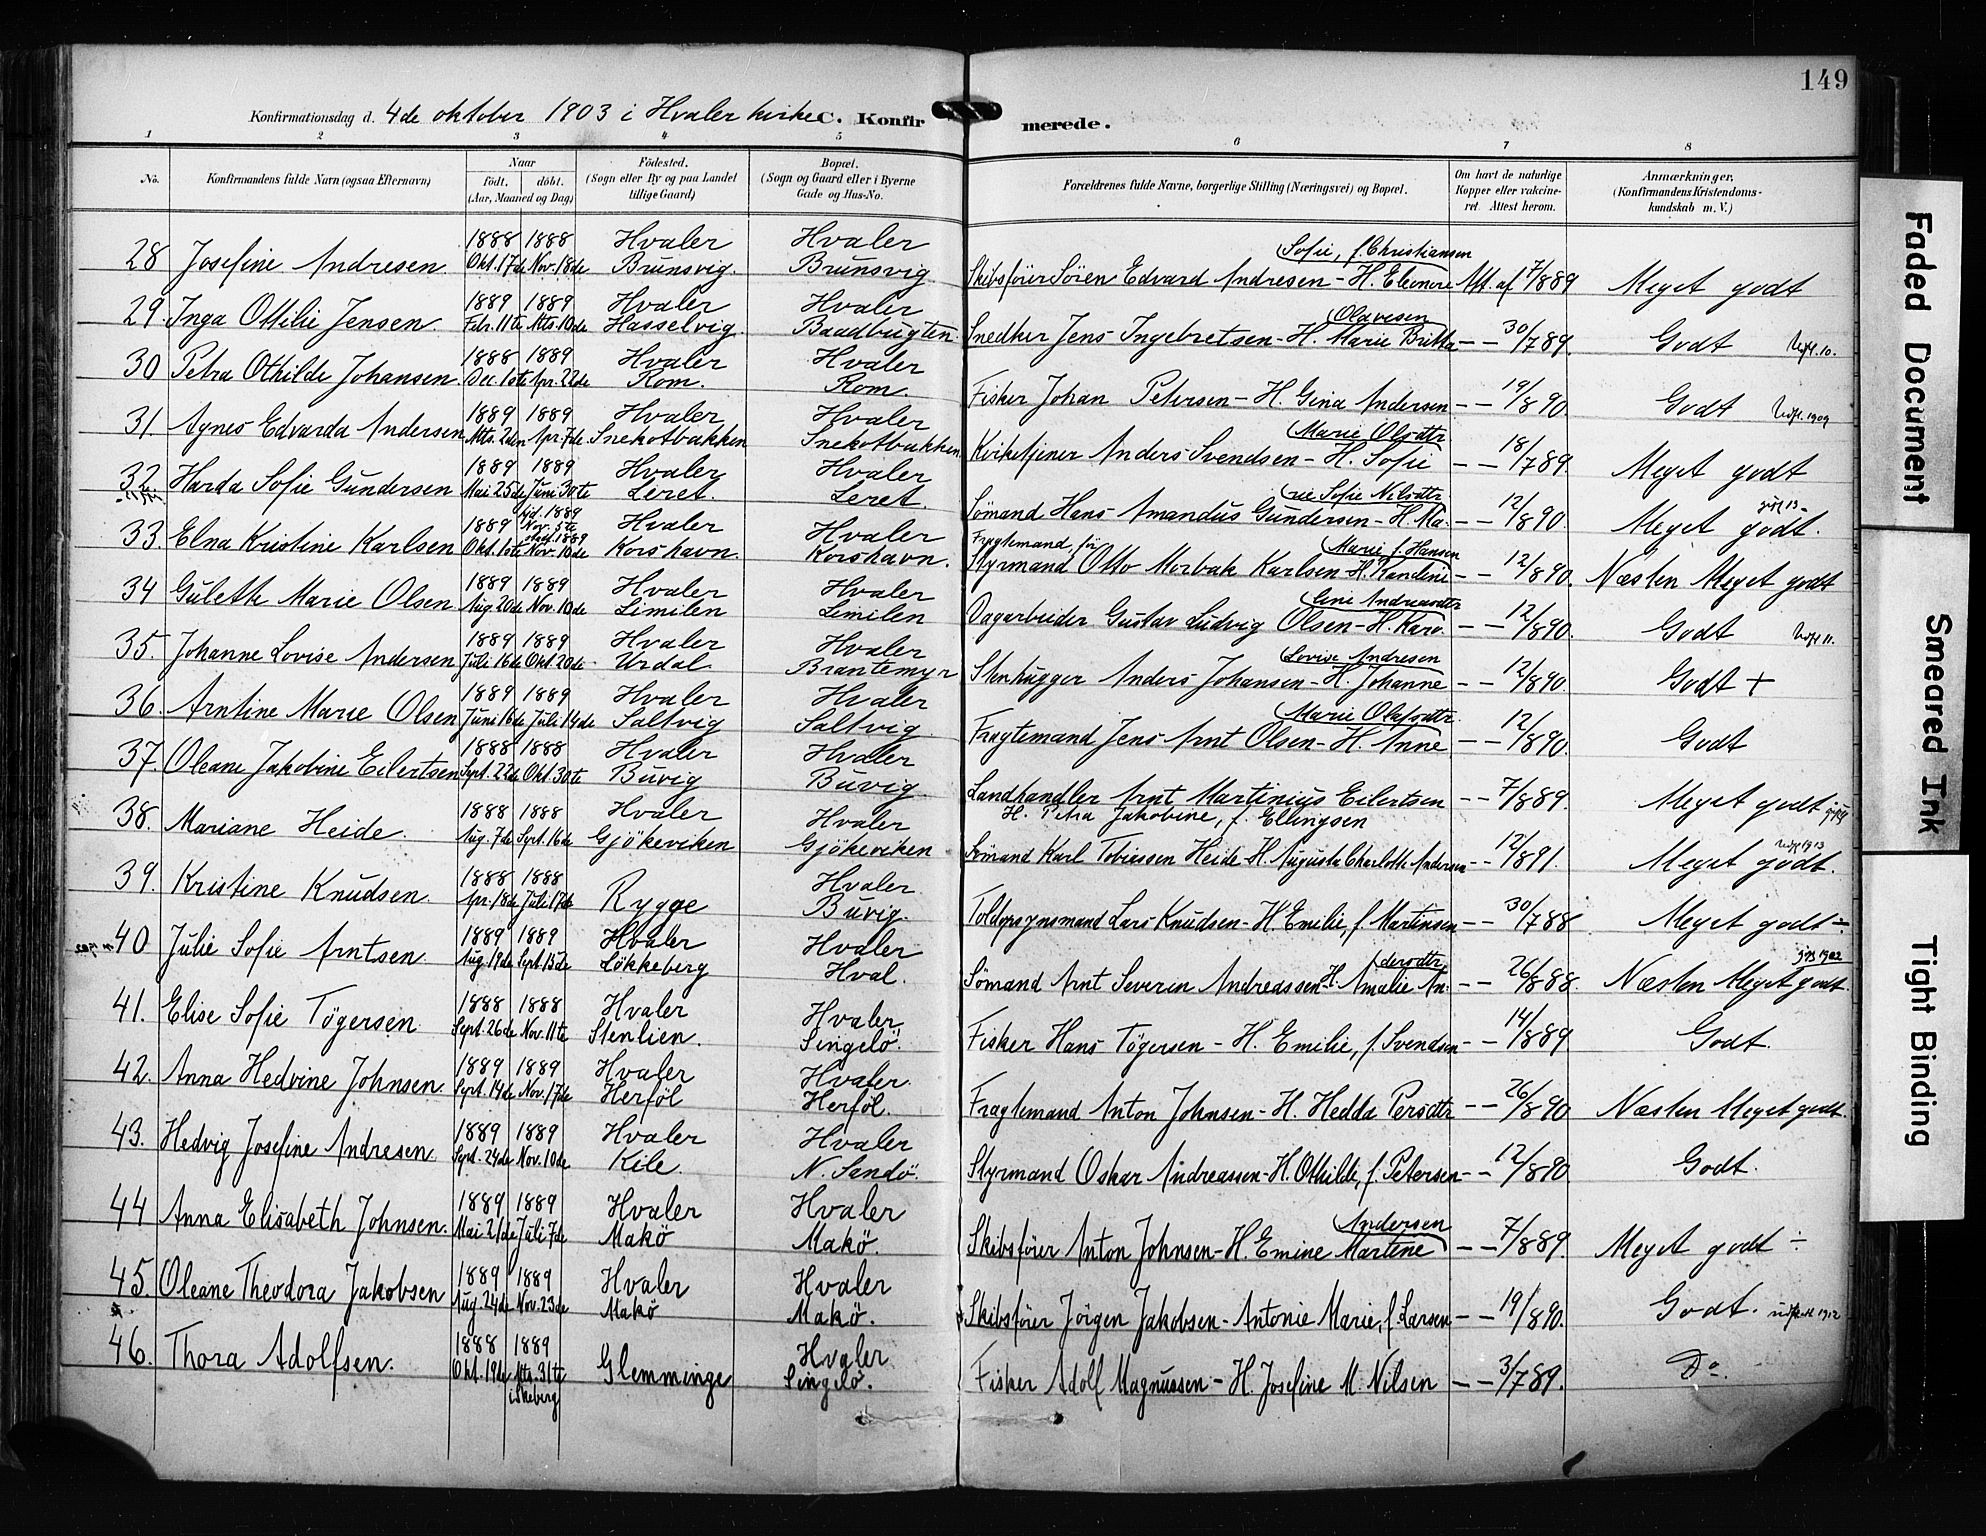 149
Konfirmationsdag d. 4de oktober 1903 i Hvaler kirke C. Konfirmerede.
1 2 3 4 5 6 7 8
No. Konfirmandens fulde Navn (ogsaa Efternavn) Naar født. døbt. (Aar, Maaned og Dag) Födested. (Sogn eller By og paa Landet tillige Gaard) Bopæl. (Sogn og Gaard eller i Byerne Gade og Hus-No. Forældrenes fulde Navne, borgerlige Stilling (Næringsvei) og Bopæl. Om havt de naturlige Kopper eller vakcineret. Attest herom. Anmærkninger, (Konfirmandens Kristendomskundskab m. V.)
28 Josefine Andresen 1888 Okt. 17de 1888 Nov. 18de Hvaler Brunsvig. Hvaler Brunsvig Skibsfører Sören Edvard Andresen - H. Eleonore Sofie, f. Christiansen Att. af 7/8 89 Meget godt
29. Inga Ottilie Jensen. 1889 Febr. 11te 1889 Mts. 10de Hvaler Hasselvig. Hvaler Baadbugten Snedker Jens Ingebretsen - H. Marie Britta Olavesen - - 30/7 89. Godt
30 Petra Othilde Johansen 1888 Dec. 1ste 1889 Apr. 22de Hvaler Rom. Hvaler Rom. Fisker Johan Petersen - H. Gina Andersen - - 19/8 90 Godt Udfl. 1909
31. Agnes Edvarda Andersen 1889 Mts. 2den 1889 Apr. 7de Hvaler Snekotbakken Hvaler Snekotbakken Kirketjener Anders Svendsen - H. Sofie Marie Olsdtr - - 18/7 89 Meget godt
32. Harda Sofie Gundersen 1889 Mai 25de 1889 Juni 30te Hvaler Leret. Hvaler Leret Sömand Hans Amandus Gundersen - H. Ma- rie Sofie Nilsdtr - - 12/8 90. Meget godt.
33. Elna Kristine Karlsen 1889 Okt. 1ste 1889 Nov. 5te 1889 Nov. 10de Hvaler Korshavn. Hvaler Korshavn. Fragtemand, før Styrmand Otto Morbak Karlsen H. Randine Marie f. Hansen - - 12/8 90. Næsten Meget godt
34 Guleth Marie Olsen 1889 Aug. 20de 1889 Nov. 10de Hvaler Limilen Hvaler Limilen Dagarbeider Gustav Ludvig Olsen - H. Karo- line Andreasdtr - - 12/8 90. Godt Udfl. 11.
35. Johanne Lovise Andersen 1889 Juli 16de 1889 Okt. 20de Hvaler Urdal Hvaler Brantemyr Stenhugger Anders Johansen - H. Johanne Lovise Andresen - - 12/8 90. Godt +
36. Arntine Marie Olsen 1889 Juni 16de 1889 Juli 14de Hvaler Saltvig Hvaler Saltvig Fragtemand Jens Arnt Olsen - H. Anne Marie Olafsdtr. - - 12/8 90. Godt
37. Oleane Jakobine Eilertsen 1888 Sept. 22de 1888 Okt. 30te Hvaler Buvig Hvaler Buvig. Landhandler Arnt Martinius Eilertsen H. Petra Jakobine, f. Ellingsen - - 7/8 89. Meget godt
38. Mariane Heide. 1888 Aug. 7de 1888 Sept. 16de Hvaler Gjökeviken Hvaler Gjökeviken Sömand Karl Tobiassen Heide - H. Augusta Charlotte Andersen - - 12/8 91. Meget godt.
39. Kristine Knudsen 1888 Apr. 18de 1888 Juli 17de Rygge Hvaler Buvig. Toldopsynsmand Lars Knudsen - H. Emilie, f. Martinsen - - 30/7 88. Meget godt ÷
40 Julie Sofie Arntsen. 1889 Aug. 19de 1889 Sept. 15de Hvaler Lökkeberg Hvaler Hval. Sömand Arnt Severin Andreassen - H. Amalie An- dersdtr - - 26/8 88 Næsten Meget godt.
41. Elise Sofie Tögersen 1888 Sept. 26de 1888 Nov. 11te Hvaler Stenlien. Hvaler Singelö. Fisker Hans Tögersen - H. Emilie, f. Svendsen - - 14/8 89 Godt.
42. Anna Hedvine Johnsen. 1889 Sept. 14de 1889 Nov. 17de Hvaler Herföl Hvaler. Herföl. Fragtemand Anton Johnsen - H. Hedda Persdtr - - 26/8 90 Næsten Meget godt.
43. Hedvig Josefine Andresen. 1889 Sept. 24de 1889 Nov. 10de Hvaler Kile. Hvaler N. Sandö. Styrmand Oskar Andreassen - H. Othilde, f. Petersen - - 12/8 90 Godt.
44 Anna Elisabeth Johnsen. 1889 Mai 21de 1889 Juli 7de Hvaler Makö Hvaler Makö. Skibsfører Anton Johnsen - H. Emine Martine Andersen - - 7/8 89. Meget godt ÷
45. Oleane Theodora Jakobsen 1889 Aug. 24de 1889 Nov. 23de Hvaler Makö Hvaler Makö. Skibsfører Jörgen Jakobsen - Antonie Marie, f. Larsen - - 19/8 90. Godt.
46. Thora Adolfsen. 1888 Okt. 19de 1889 Mts. 31te i Skeberg Glemminge Hvaler Singelö. Fisker Adolf Magnussen - H. Josefine M. Nilsen - - 3/7 89. Do.
Faded Document
Smeared Ink
Tight Binding